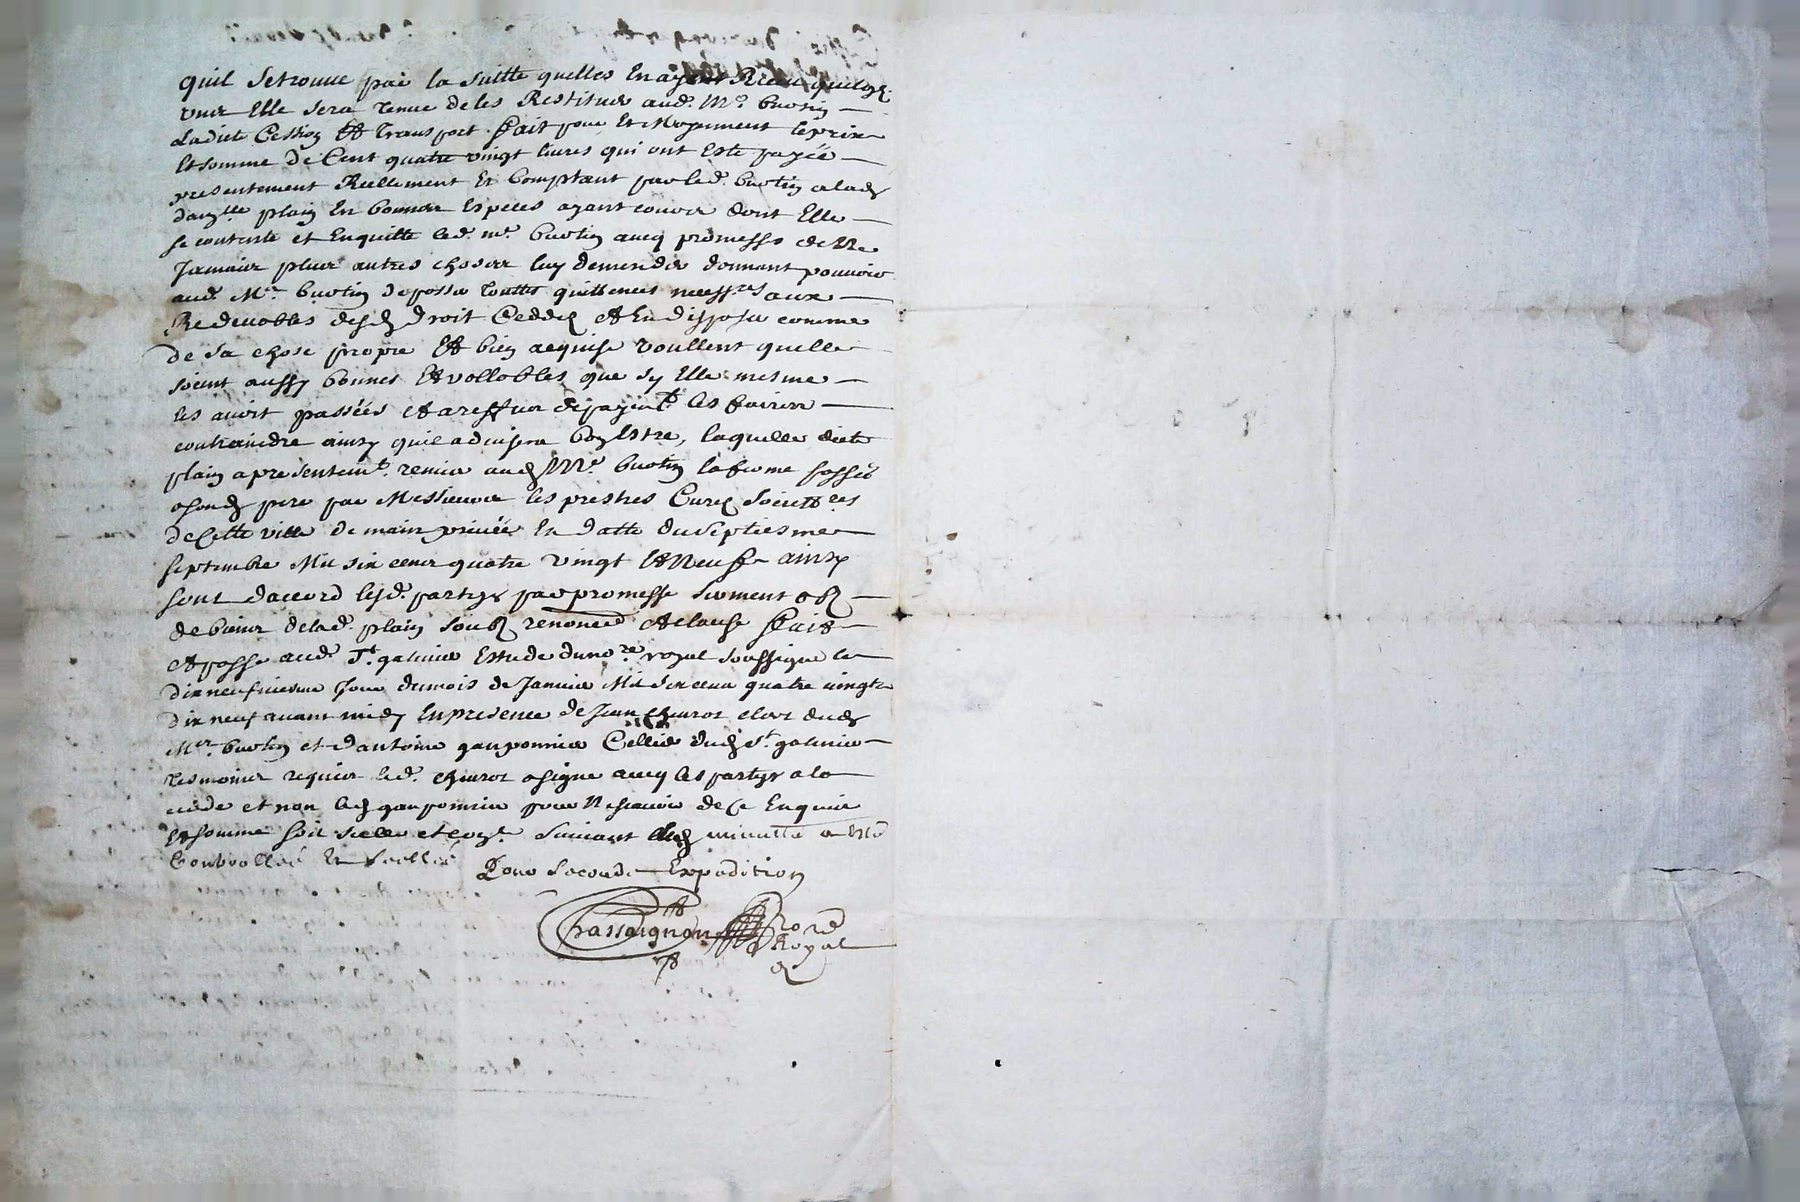 quil se trouve par la suitte quelles En ayent Rien
elle sera tenue de les Restituer aud. Mr. Burtin
ladicte Cession Et transport fait pour Et Moyennant le prix
Et somme de Cent quatre vingt livres qui ont Esté payée
presentement Reellement Et Comptant par led. Burtin a lad
plain En bonnes Especes ayant couvrs dont Elle
se contente et Enquitte led. mr. Burtin avecq promesse de Ne
Jamaix plux autres choses luy demender donnant pouvoir
aud. Mr. Burtin de passer touttes quittences necessres aux
Redevables desd droit Ceddez Et En disposer comme
de sa chose propre Et bien acquise voullent quelle
soient aussy bonnes Et vallables que sy Elle mesme
les avoit passées Et a reffus de payemt. les fairre
contraindre ainsy quil advisera bon Estre, laquelle dicte
plain a presentemt. remis aud Mr. Burtin la ferme passée
a fond pere par Messieurs les prestres Curez societtres
de Cette ville de main privée En datte du septiesme
septembre Mil six cens quatre vingt Et Neuf ainsy
sont daccord lesd. partyes par promesse serment obn
de biens de lad. plain soubn renoncn Et clause fait
Et passé aud. St. galmier Estude du nore royal soussigne le
dix neufviesme Jour du mois de Janvier Mil six cens quatre vingts
dix neuf avant midy En presence de Jean clerc dud
Mr. Burtin et dantoine gauponnier Cellier dud St. galmier
tesmoins requis led. a signe avecq les partyes a la
cede et non led gauponnier pour Ne scavoir de Ce Enquis
Et somme soit scelle et suivant lad minutte
Controllée Et scellée
Pour Seconde Expedition
Chassaignon Nore
Royal